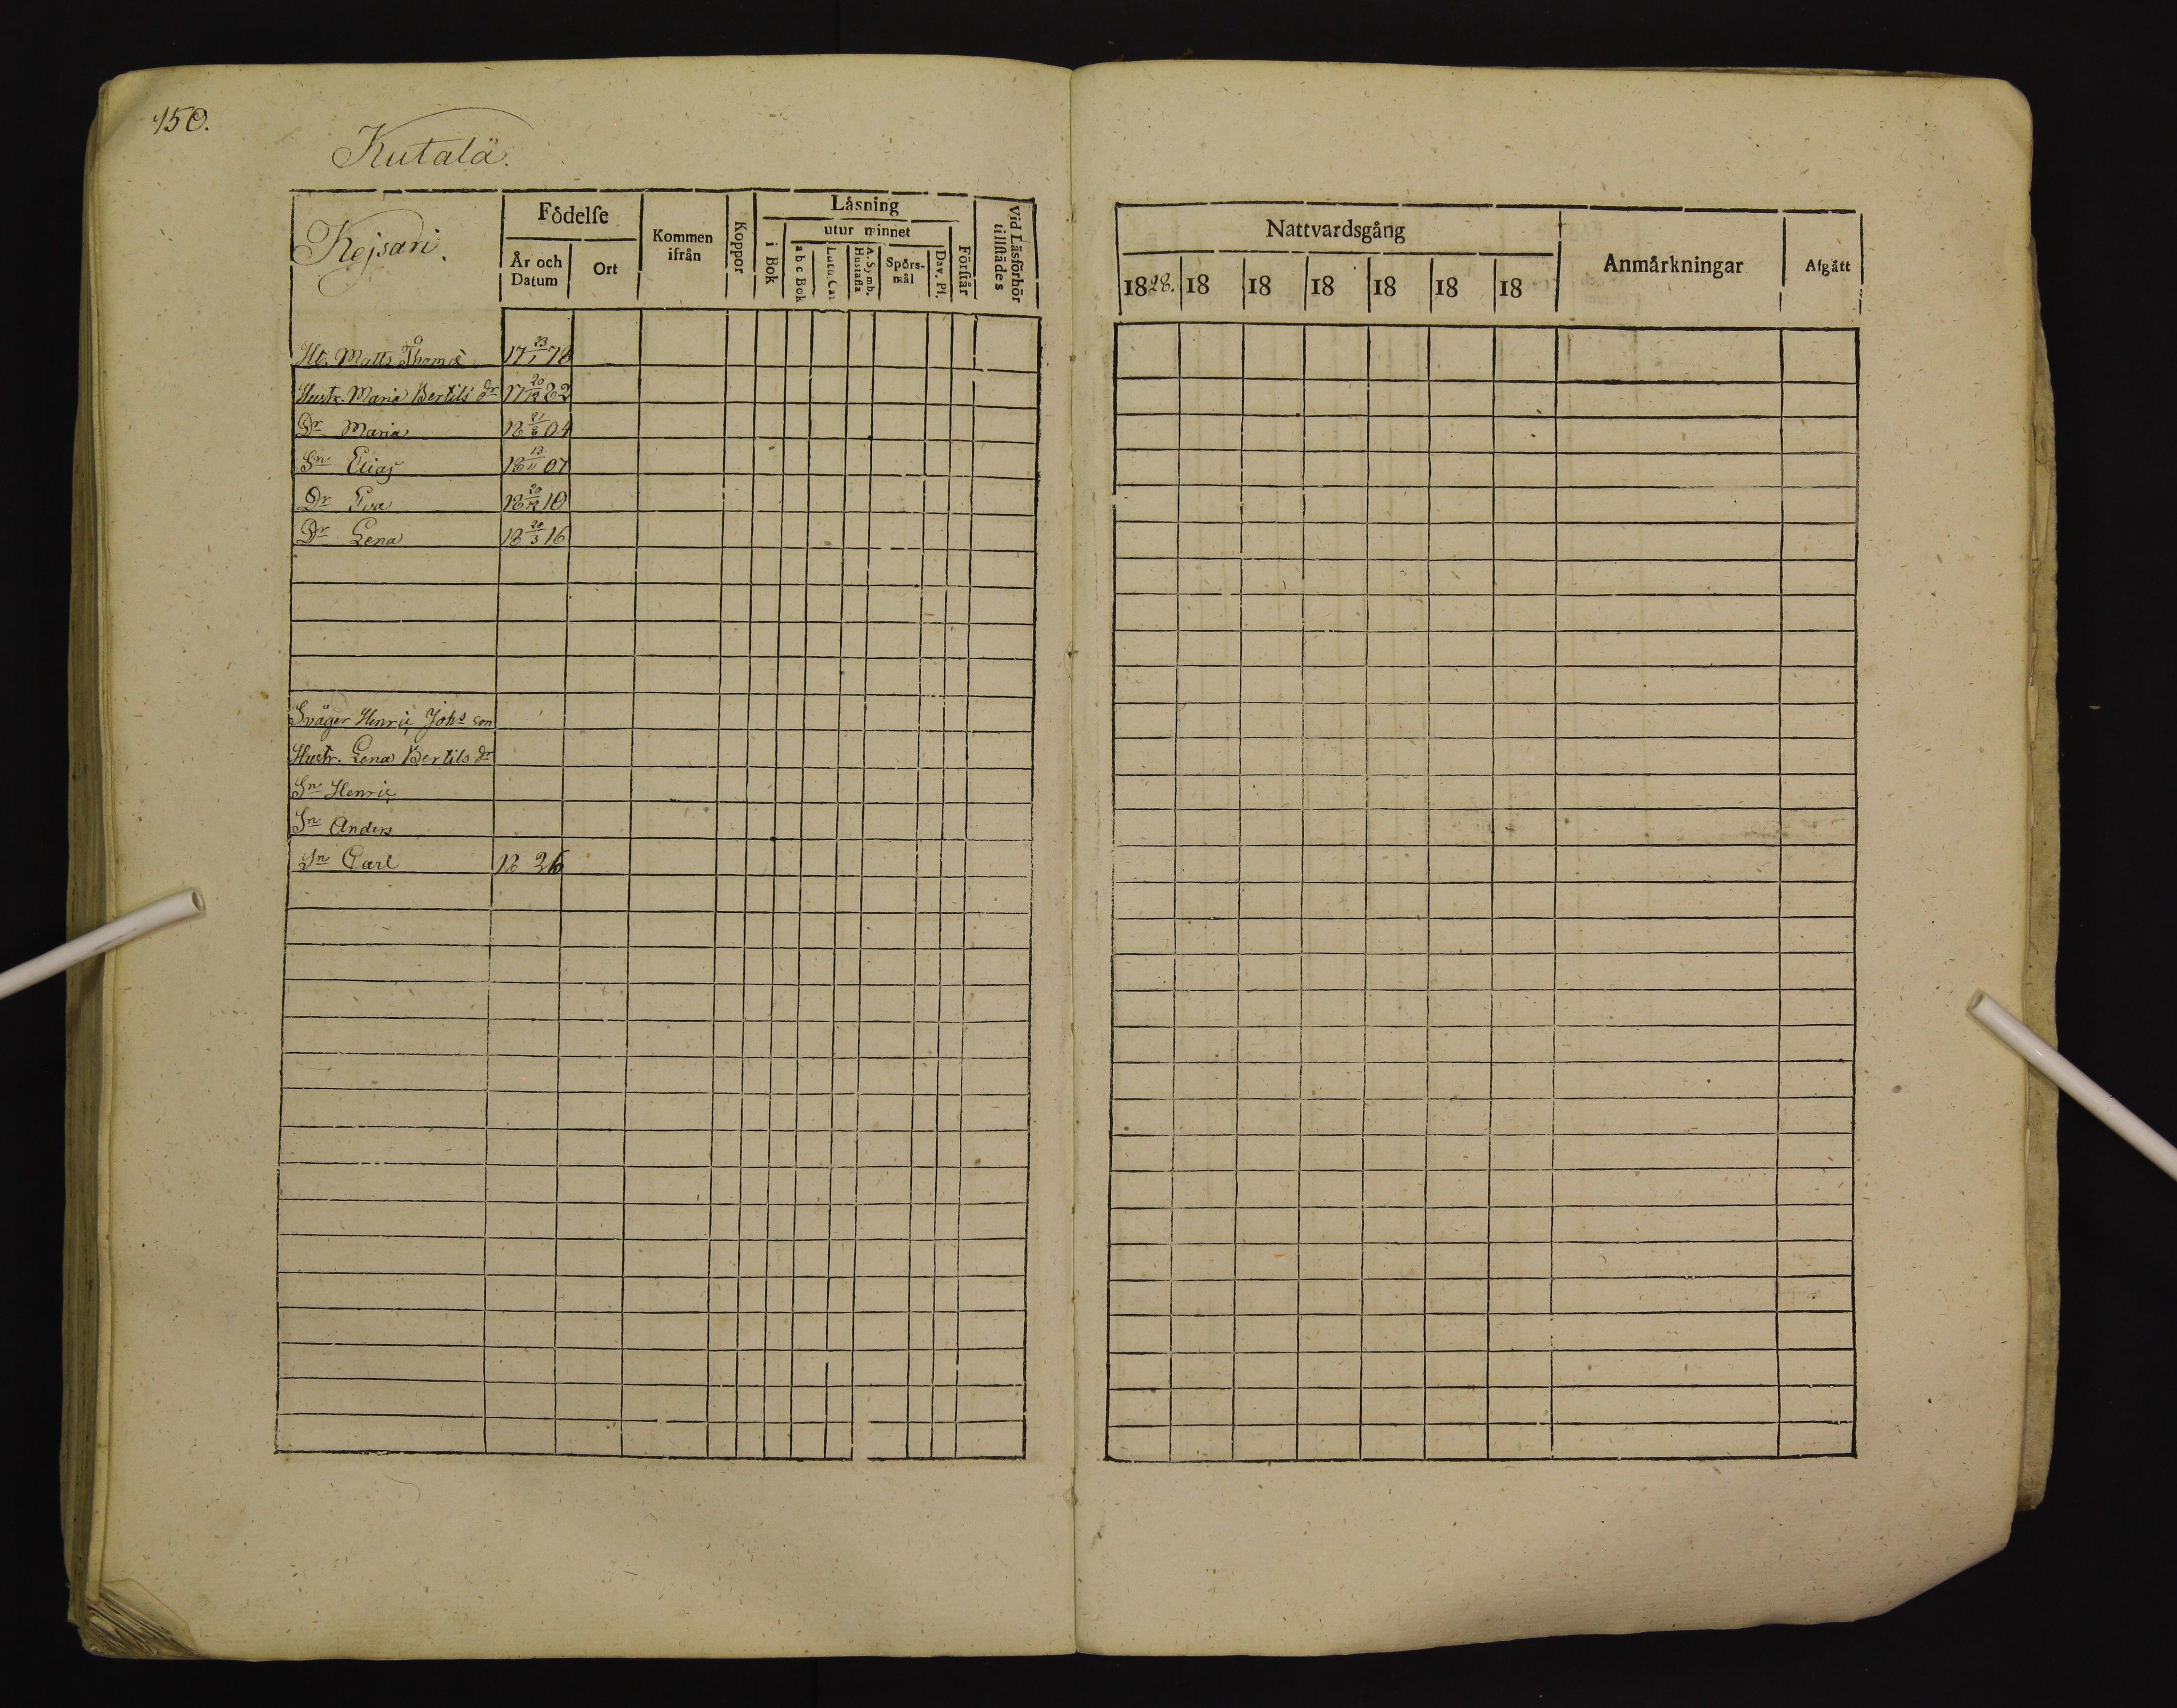 150.
Kutalä.
Kejsari.
Födelse
År och Datum
Ort
Kommen ifrån
Koppor
Låsning
i Bok
utur minnet
a b c Bok
Luth. Cat
A. Symb. Hustafla
Spörs-mål
Dav. Ps.
Förstår
Vid Läsförhör tillstädes
Nattvardsgång
1828. 18 18 18 18 18 18
Anmårkningar
Afgått
Hb. Matts Thomæ 17 23/1 78
Hustr. Maria Bertils dr 17 20/12 82
Dr Maria 18 21/8 04
Sn Elias 18 13/11 07
Dr Eva 18 20/12 10
Dr Lena 18 20/3 16
Svåger Henric Johs son
Hustr. Lena Bertils dr
Sn Henric
Sn Anders
Sn Carl 18 26